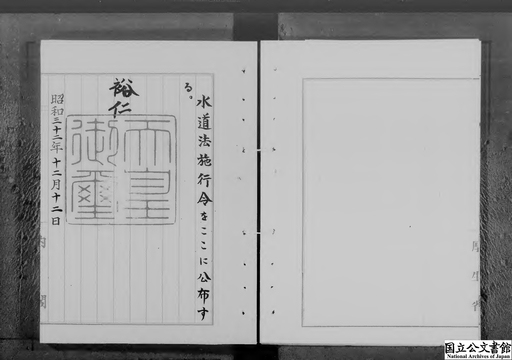 水道法施行令をここに公布す
る。
裕仁
天皇
御璽
昭和三十二年十二月十二日
内閣
厚生省
国立公文書館
National Archives of Japan